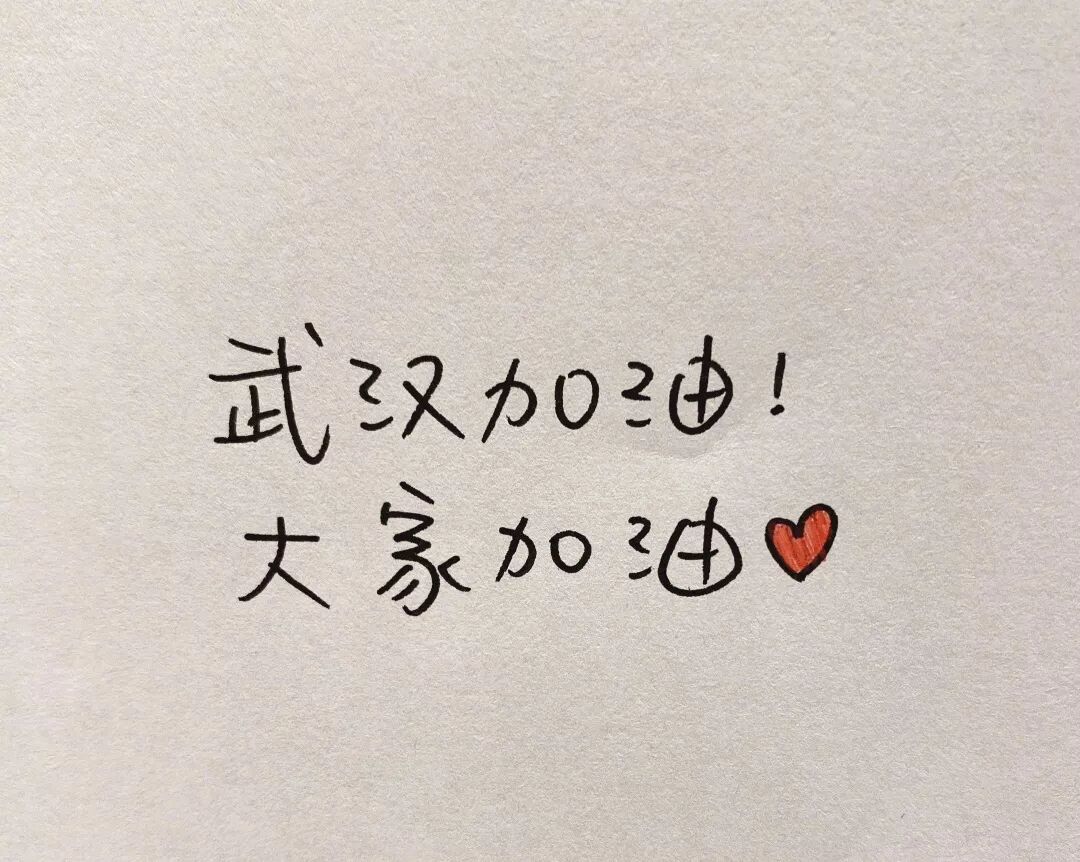 武汉加油!
大家加油